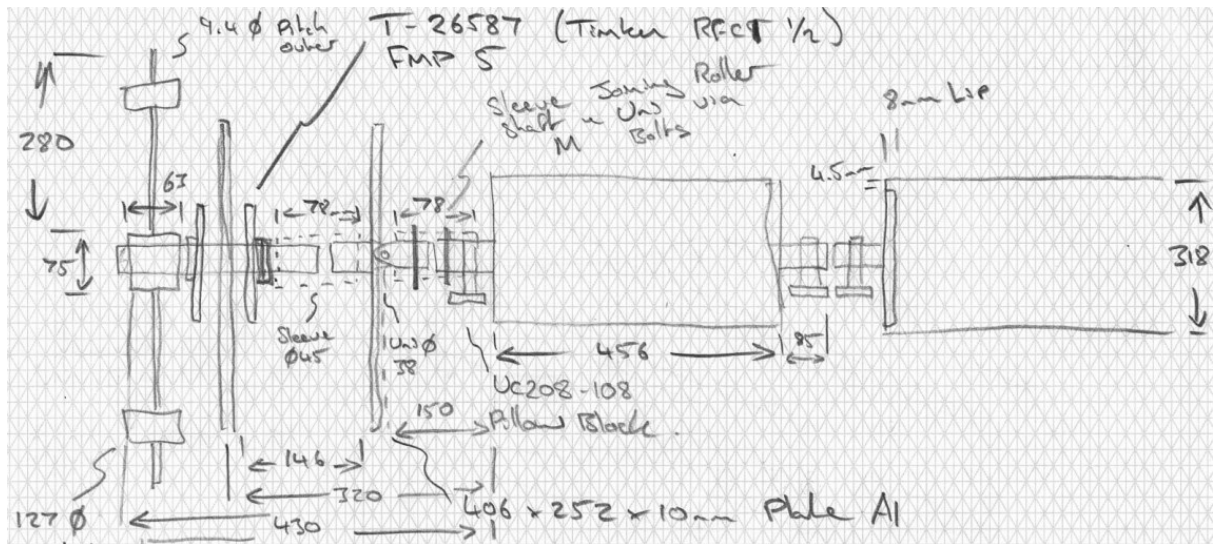 9.4 Ø Pitch
outer
T-26587 (Timken RFCT 1/2)
FMP 5
Sleeve Joining Roller
shaft
Uni via
M
Bolts
8mm Lip
280
63
4.5mm
78
78
75
318
Sleeve
Ø45
Uni Ø
38
456
85
UC208-108
Pillow Block.
150
146
320
127 Ø
430
406 x 252 x 10mm Plate Al